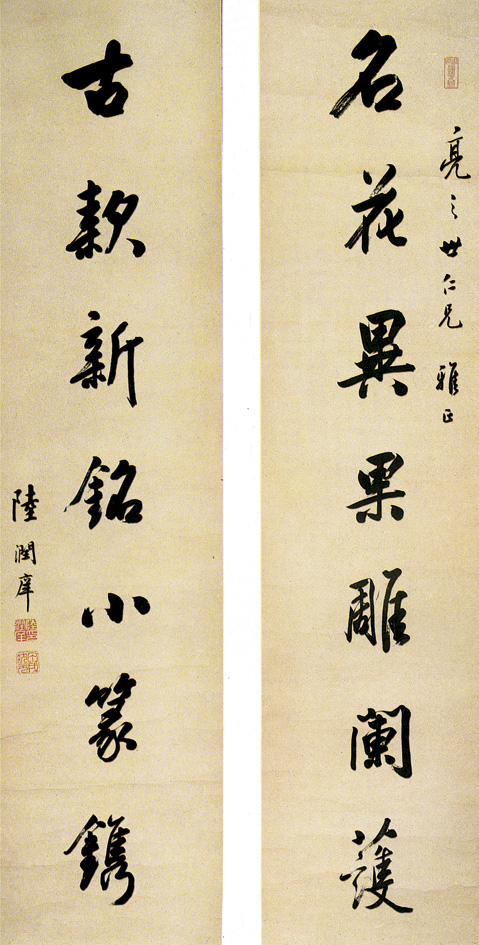 亮之世仁兄 雅正
名花異果雕闌護
古欵新銘小篆鐫
陸潤庠